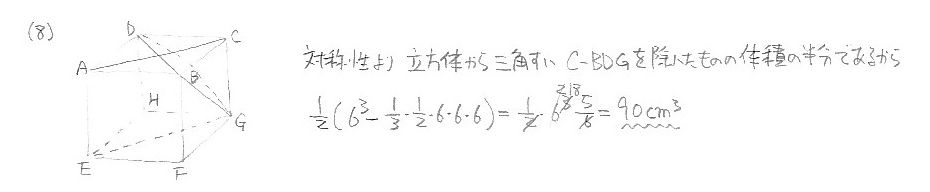 (8)
D
C
A
B
H
G
E
F
対称性より 立方体から三角すい C-BDGを除いたものの体積の半分であるから
1/2(6³-1/3·1/2·6·6·6)=1/2·6³ 5/6=90cm³